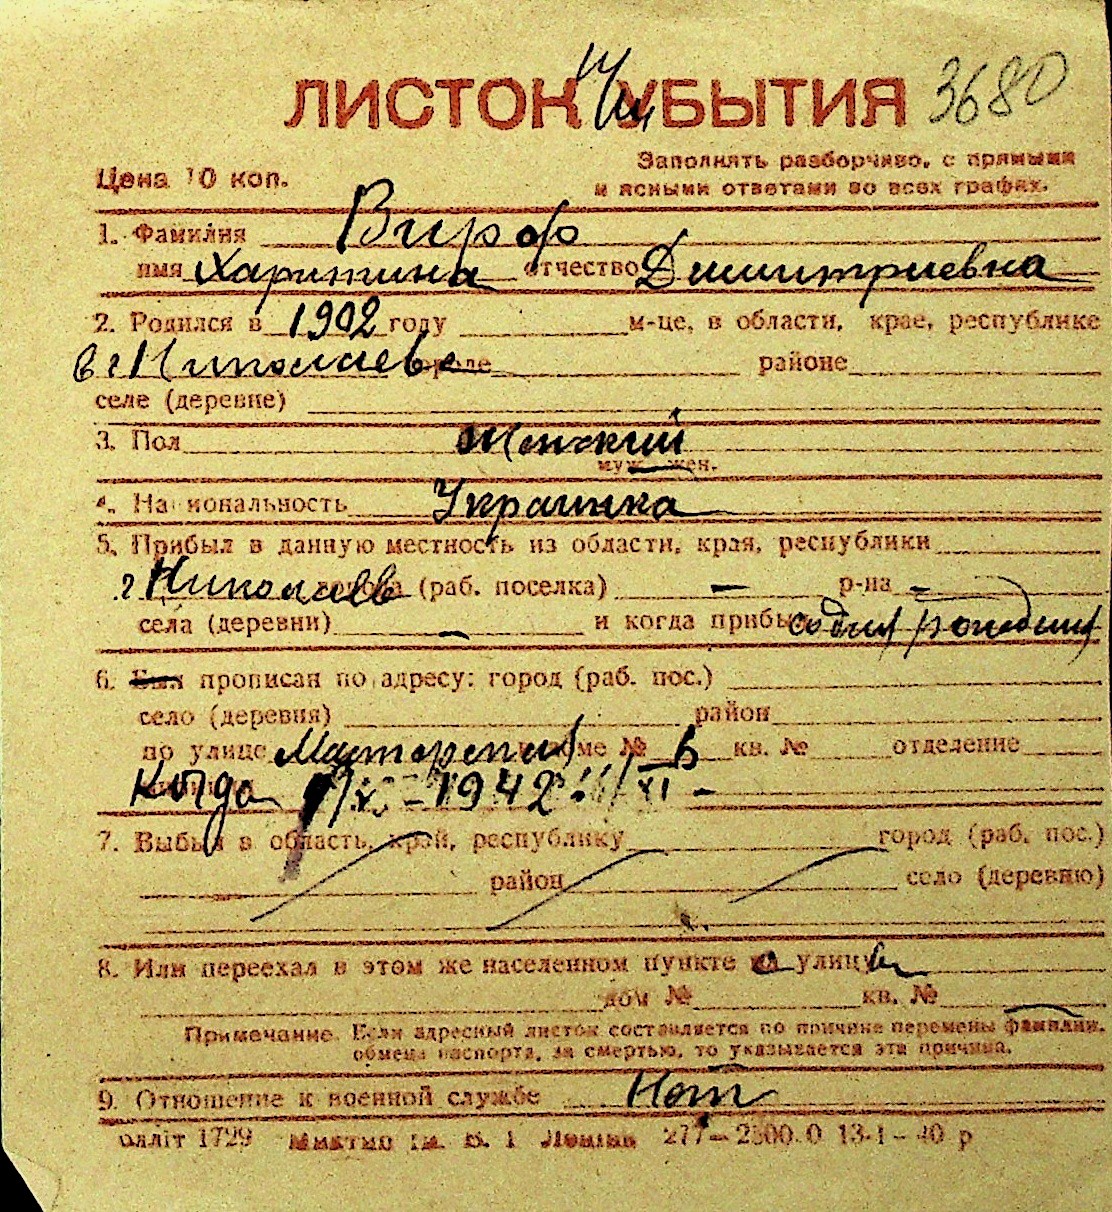 ЛИСТОК УБЫТИЯ 3680
Цена 10 коп.
Заполнять разборчиво, с прямыми
и ясными ответами во всех графах.
1. Фамилия
имя Харитина отчество Димитриевна
2. Родился в 1902 году м-це, в области, крае, республике
в г Николаеве городе районе
селе (деревне)
3. Пол женский
муж. жен.
4. Национальность Украинка
5. Прибыл в данную местность из области, края, республики
г Николаев города (раб. поселка) — р-на —
села (деревни) — и когда прибыл
6. Был прописан по адресу: город (раб. пос.)
село (деревня) район
по улице доме № 6 кв. № отделение
милиции Когда 1942 XI -
7. Выбыл в область, край, республику город (раб. пос.)
район село (деревню)
8. Или переехал в этом же населенном пункте на улицу
дом № кв. №
Примечание. Если адресный листок составляется по причине перемены фамилии,
обмена паспорта, за смертью, то указывается эта причина.
9. Отношение к военной службе Нет
Облліт 1729 Миктип ім. В. І Леніна 277—2500.0 13-1-40 р